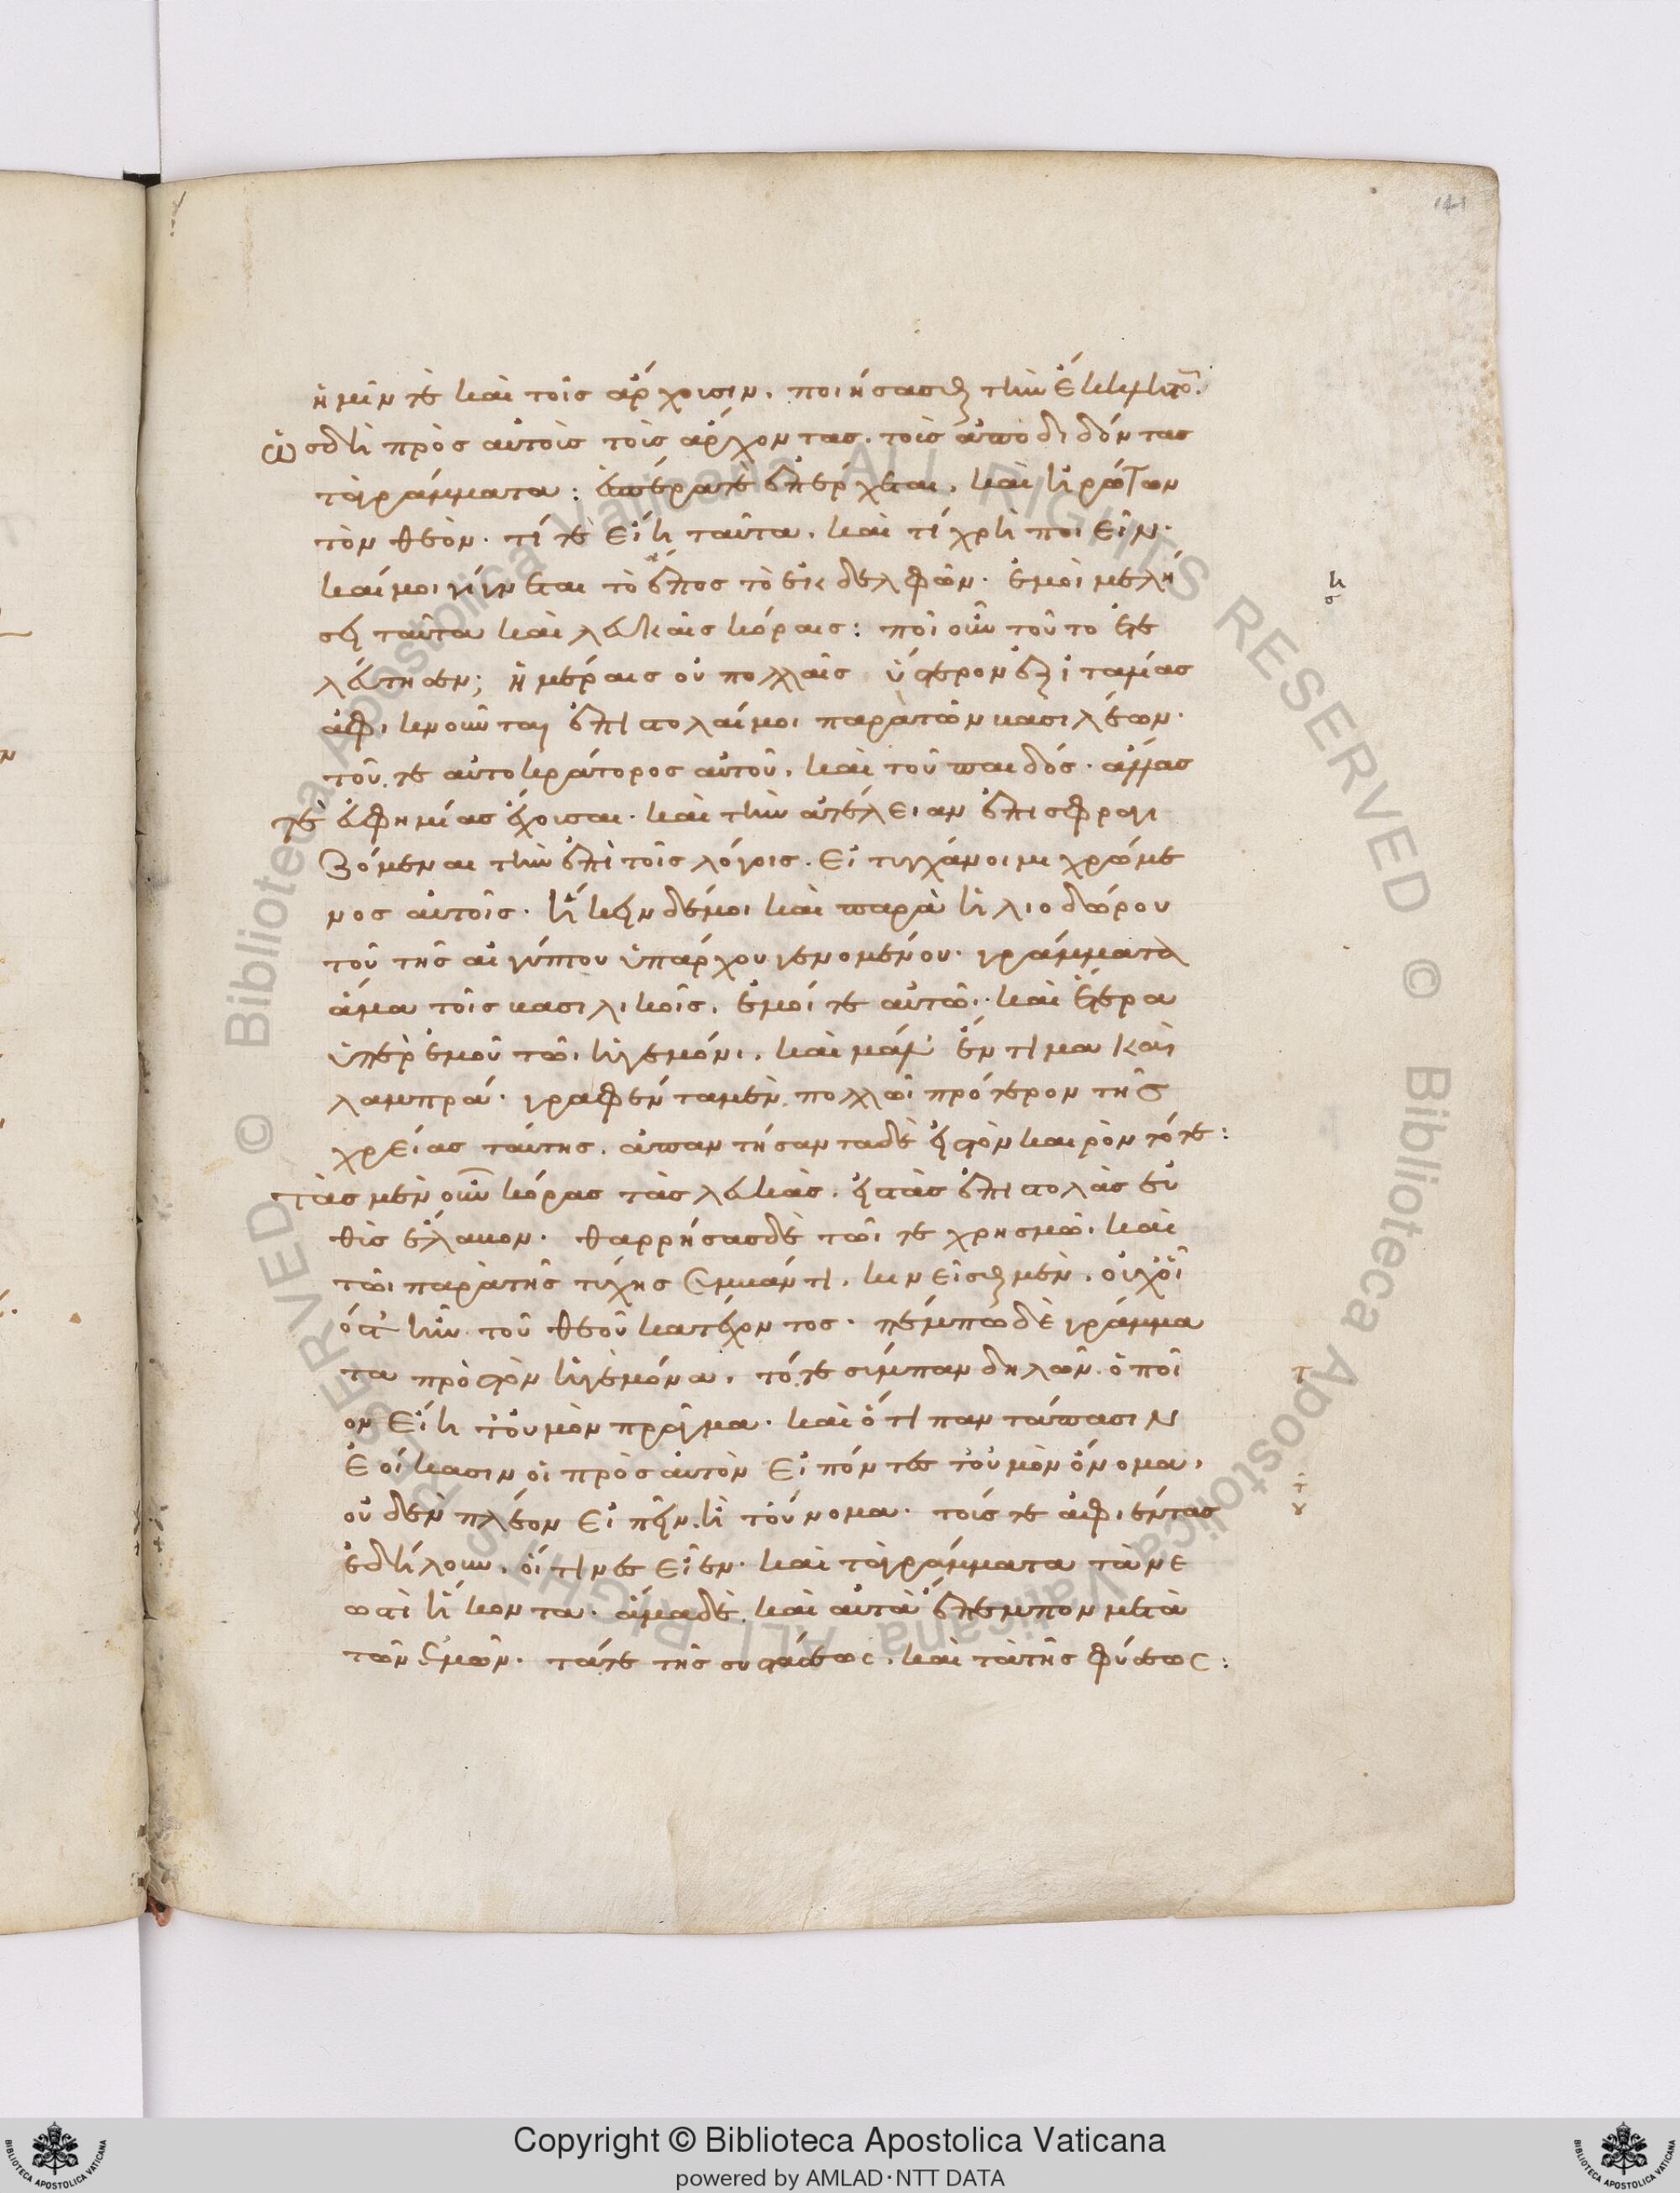 141
ἡμῖν τὲ καὶ τοῖς ἄρχουσιν. ποιήσασθαι τὴν ἔκκλητον.
ὡς δὴ πρὸς αὐτοὺς τοὺς ἄρχοντας. τοὺς ἀποδιδόντας
τὰ γράμματα: ἑσπέρα τὲ ἐπέρχεται. καὶ ἠρώτων
τὸν θεὸν. τί τὲ εἴη ταῦτα. καὶ τί χρὴ ποιεῖν.
καί μοι γίγνεται τὸ ἔπος τὸ ἐκ δελφῶν. ἐμοὶ μελή
σει ταῦτα καὶ λευκαῖς κόραις: ποῖ οὖν τοῦτο ἐτε
λεύτησεν; ἡμέραις οὐ πολλαῖς ὕστερον ἐπὶ ταμίας
ἀφικνοῦνται ἐπιστολαί μοι παρὰ τῶν βασιλέων.
τοῦ τε αὐτοκράτορος αὐτοῦ. καὶ τοῦ παιδός. ἄλλας
τὲ εὐφημίας ἔχουσαι. καὶ τὴν ἀτέλειαν ἐπισφραγι
ζόμεναι τὴν ἐπὶ τοῖς λόγοις. εἰ τυγχάνοιμι χρώμε
νος αὐτοῖς. ἧκεν δέ μοι καὶ παρὰ ἡλιοδώρου
τοῦ τῆς αἰγύπτου ὑπάρχου γενομένου. γράμματα
ἅμα τοῖς βασιλικοῖς. ἐμοί τε αὐτῶι. καὶ ἕτερα
ὑπὲρ ἐμοῦ τῶι ἡγεμόνι. καὶ μάλ' ἔντιμα καὶ
λαμπρά. γραφέντα μὲν πολλῶι πρότερον τῆς
χρείας ταύτης. ἀπαντήσαντα δὲ εἰς τὸν καιρὸν τότε:
τὰς μὲν οὖν κόρας τὰς λευκὰς. εἰς τὰς ἐπιστολὰς εὐ
θὺς ἔλαβον. θαρρήσας δὲ τῶι τε χρησμῶι. καὶ
τῶι παρὰ τῆς τύχης συμβάντι. κινεῖσθαι μὲν. οὐχ οἷ
ός τ' ἦν τοῦ θεοῦ κατέχοντος. πέμπω δὲ γράμμα
τα πρὸς τὸν ἡγεμόνα. τό τε σύμπαν δηλῶν. ὁποῖ
ον εἴη τοὐμὸν πρᾶγμα. καὶ ὅτι παντάπασιν
ἐοίκασιν οἱ πρὸς αὐτὸν εἰπόντες τοὐμὸν ὄνομα,
οὐδὲν πλέον εἰπεῖν ἢ τοὔνομα. τούς τε ἀφιέντας
ἐδήλουν. οἵτινες εἶεν. καὶ τὰ γράμματα τὰ νε
ωστὶ ἥκοντα. ἅμα δὲ καὶ αὐτὰ ἔπεμπον μετὰ
τῶν ἐμῶν. τά τε τῆς συστάσεως. καὶ τὰ τῆς φύσεως:
Copyright © Biblioteca Apostolica Vaticana
powered by AMLAD·NTT DATA